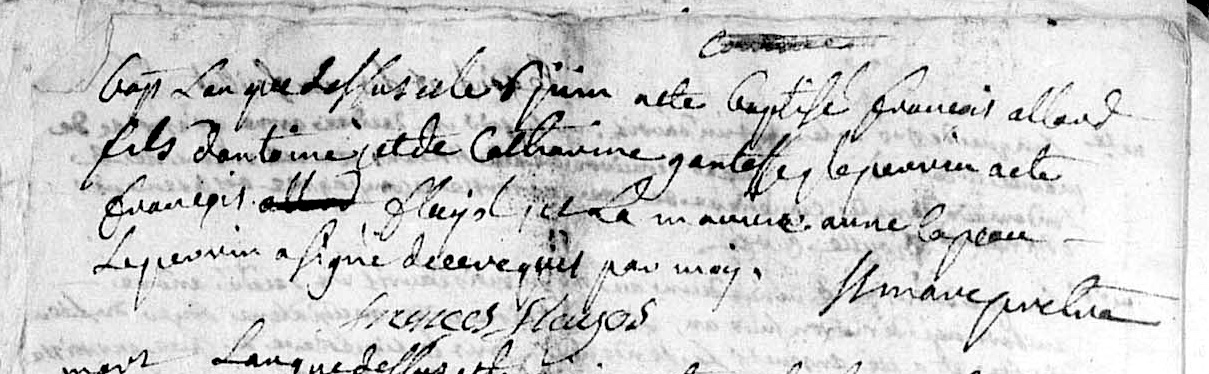 bap Lan que dessus et le 8 juin a ete baptisé francois allard
fils dantoine et de Catharine gantesse le perrin a ete
francois flayol et La marine anne lapeau
Le perrin a signé de ce requis par moy. St marc pretre
frances flayos
mort Lan que dessus et